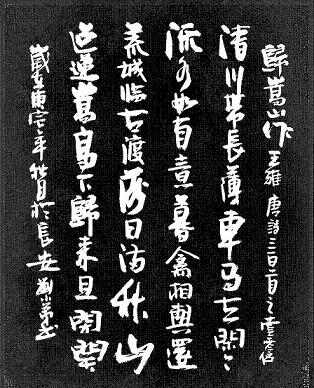 歸嵩山作 王維 唐詩三百首之壹
清川帶長薄車馬去閑〻
流水如有意暮禽相與還
荒城臨古渡落日滿秋山
迢遞嵩高下歸來且閉關
歲在庚寅年秋月於長安